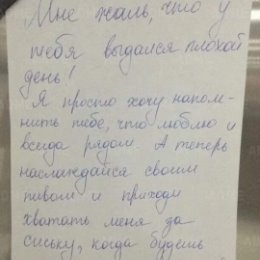 Мне жаль, что у
тебя выдался плохой
день!
Я просто хочу напом-
нить тебе, что люблю и
всегда рядом. А теперь
наслаждайся своим
пивом и приходи
хватать меня за
сиську, когда будешь